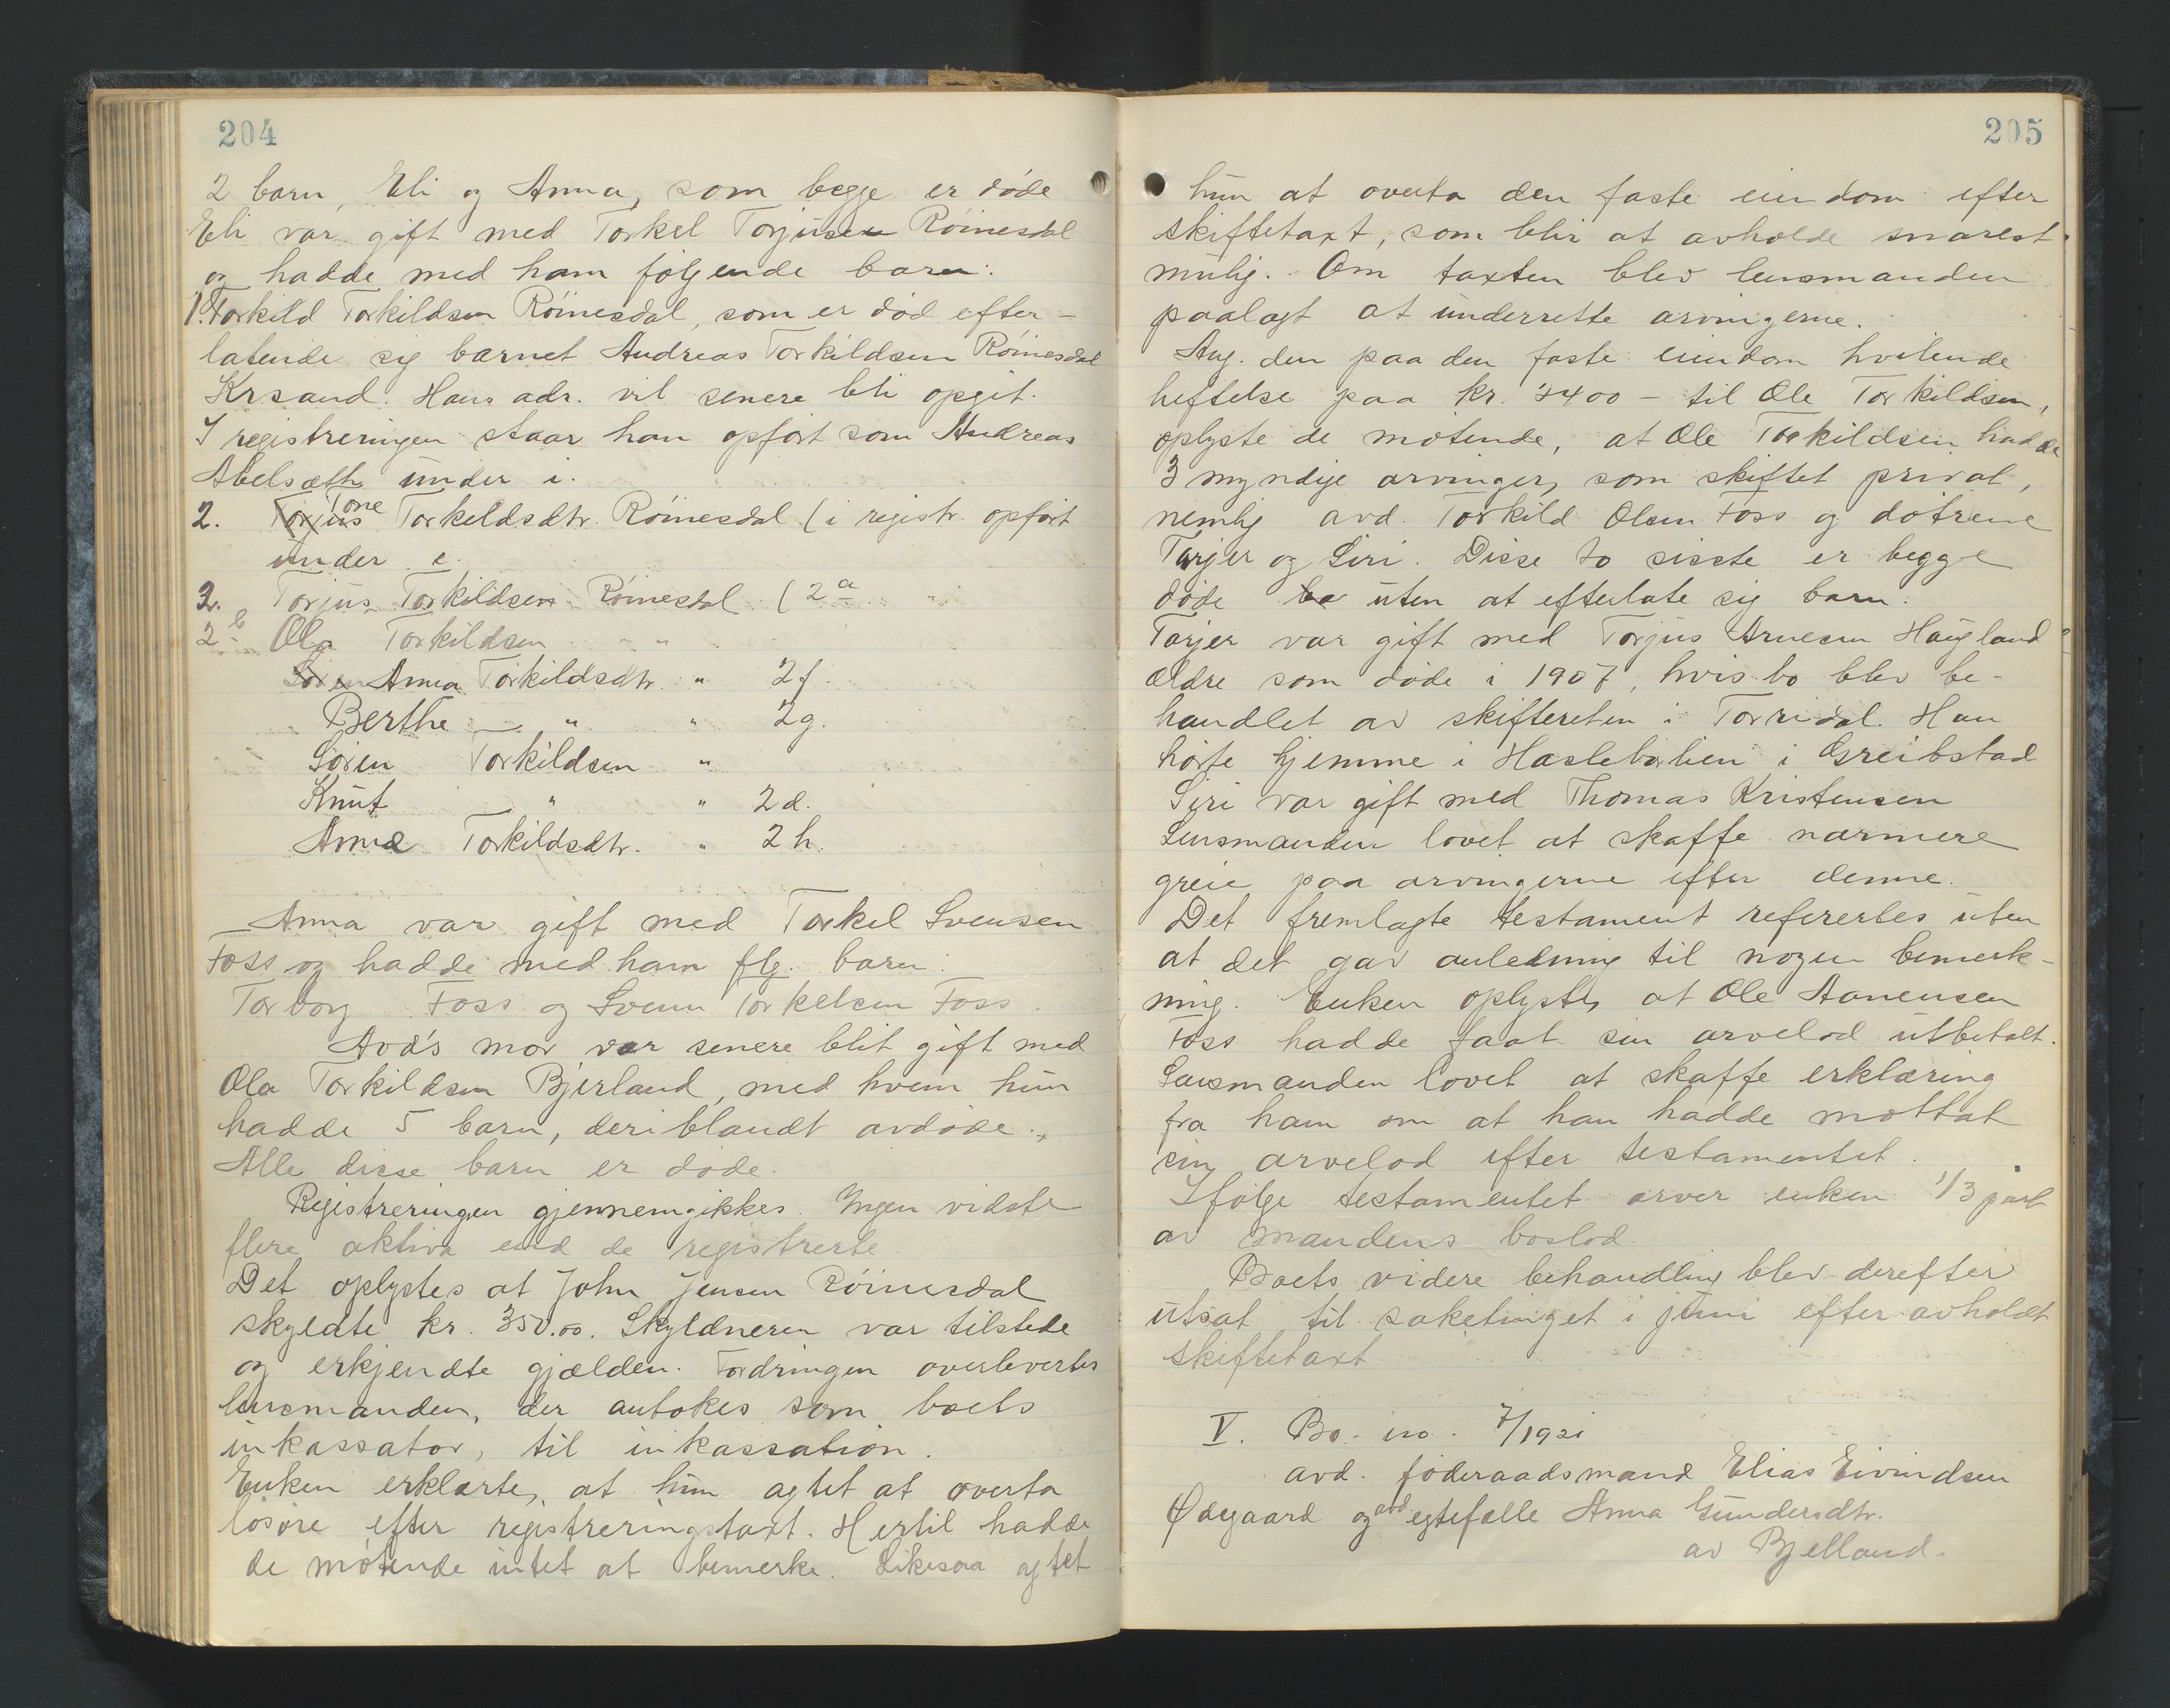 204
2 barn, Eli og Anna, som begge er døde
Eli var gift med Torkel Torjusen Röinesdal
og hadde med ham følgende barn:
1. Torkild Torkildsen Röinesdal, som er död efter-
latende sig barnet Andreas Torkildsen Röinesdal
Krsand. Hans adr. vil senere bli opgit.
I registreringen staar han opfört som Andreas
Abelsæth under i.
2. Torjus Tone Torkeldsdtr. Röinesdal (i registr. opfört
under e.
3. Torjus Torkildsen Röinesdal (2a
2b Ola Torkildsen " "
Sören Anna Torkildsdtr. " 2f.
Berthe — " " 2g.
Sören Torkildsen "
Knut " " 2d.
Anna Torkildsdtr. " 2h.
Anna var gift med Torkel Svensen
Foss og hadde med ham flg. barn:
Torborg Foss og Svenn Torkelsen Foss.
Avd's mor var senere blit gift med
Ola Torkildsen Bjerland, med hvem hun
hadde 5 barn, deriblandt avdöde.
Alle disse barn er döde.
Registreringen gjennemgikkes. Ingen vidste
flere aktiva end de registrerte.
Det oplystes at John Jensen Röinesdal
skyldte kr. 350.00. Skyldneren var tilstede
og erkjendte gjælden. Fordringen overlevertes
lensmanden, der antokes som boets
inkassator, til inkassation.
Enken erklærte, at hun agtet at overta
lösöre efter registreringstaxt. Hertil hadde
de mötende intet at bemerke. Likesaa agtet
205
hun at overta den faste eiendom efter
skiftetaxt, som blir at avholde snarest
mulig. Om taxten blev lensmanden
paalagt at underrette arvingerne.
Ang. den paa den faste eiendom hvilende
heftelse paa kr. 4400 - til Ole Torkildsen,
oplyste de mötende, at Ole Torkildsen hadde
3 myndige arvinger, som skiftet privat,
nemlig avd. Torkild Olsen Foss og dötrene
Tarjer og Siri. Disse to sisste er begge
döde uten at efterlate sig barn.
Tarjer var gift med Torjus Arnesen Haugland
ældre som döde i 1907, hvis bo blev be-
handlet av skifteretten i Torridal. Han
hörte hjemme i Haslebakken i Greibstad
Siri var gift med Thomas Kristensen
Lensmanden lovet at skaffe nærmere
greie paa arvingerne efter denne.
Det fremlagte testament refertes uten
at det gav anledning til nogen bemerk-
ning. Enken oplyste, at Ole Aanensen
Foss hadde faat sin arvelod utbetalt.
Lensmanden lovet at skaffe erklæring
fra ham om at han hadde mottat
sin arvelod efter testamentet.
Ifölge testamentet arver enken 1/3 part
av mandens boslod.
Boets videre behandling blev derefter
utsat til saketinget i juni efter avholdt
skiftetaxt
V. Bo. no. 7/1921
avd. föderaadsmand Elias Eivindsen
Ødegaard og avd. egtefælle Anna Gundersdtr.
av Bjelland.